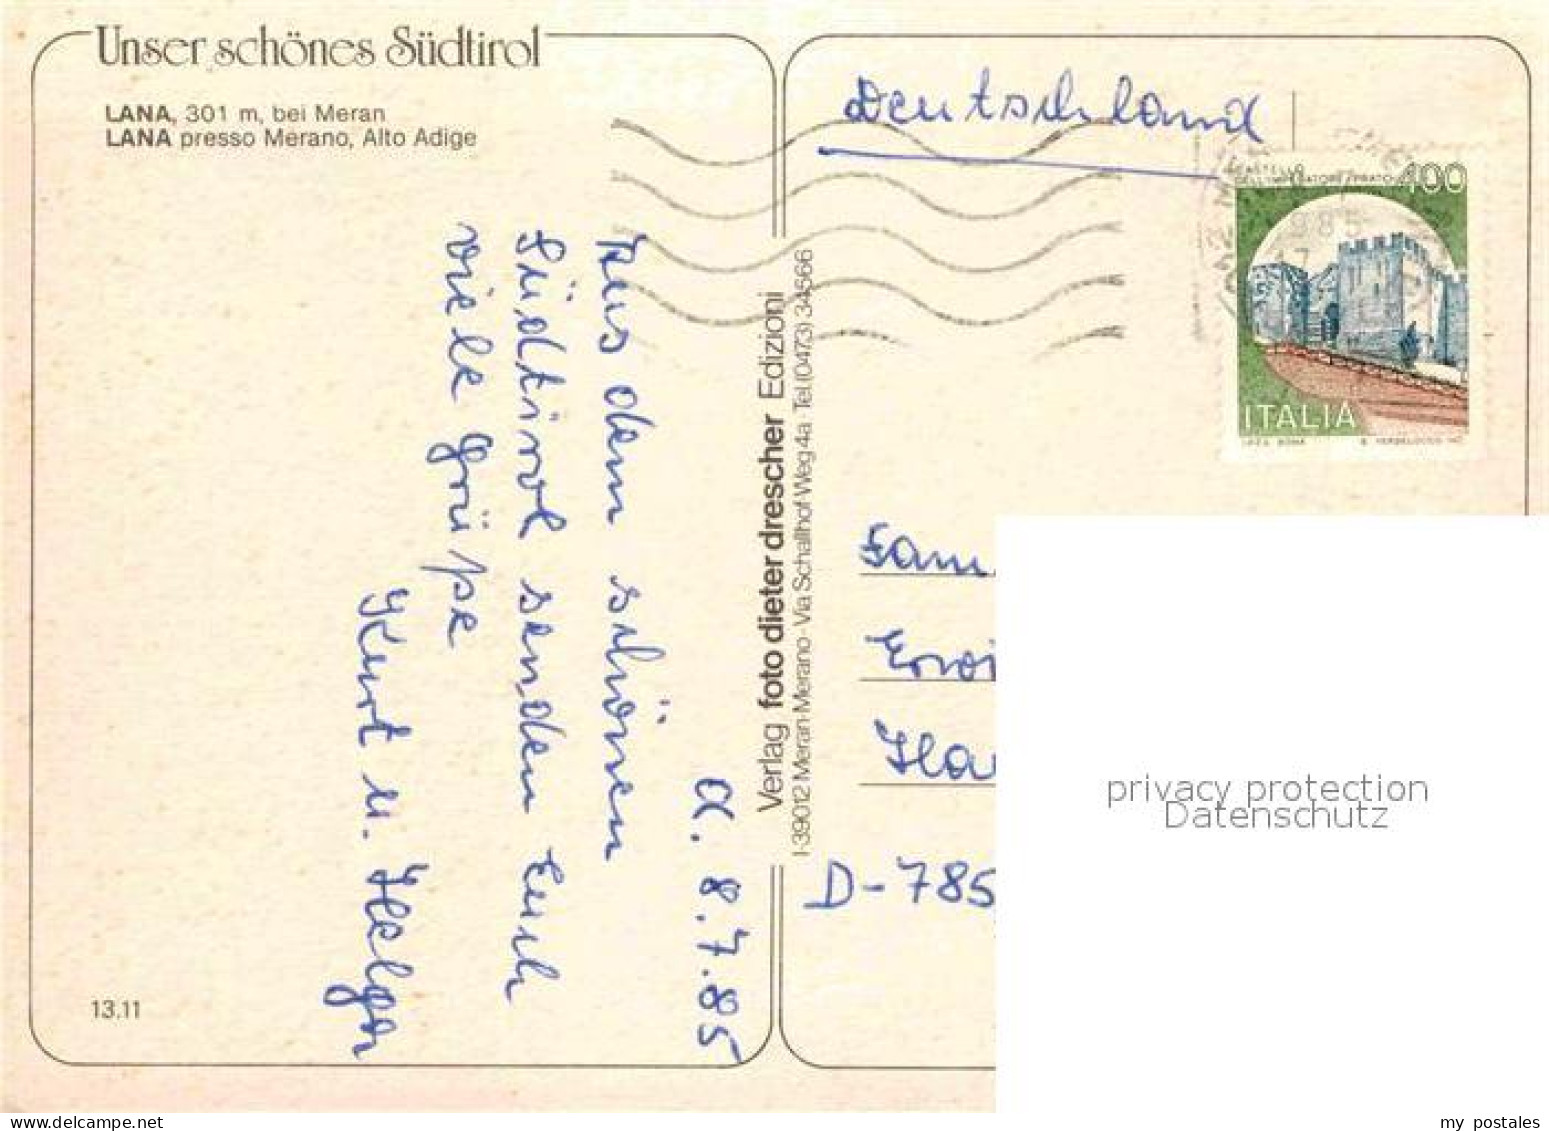 Unser schönes Südtirol
LANA, 301 m, bei Meran
LANA presso Merano, Alto Adige
Deutschland
CASTELLO
DELL'IMPERATORE PRATO
400
ITALIA
I.P.Z.S. ROMA
985
17
d. 8.7.85
Aus dem schönen
Südtirol senden Euch
viele Grüße
Kurt u. Helga
Verlag foto dieter drescher Edizioni
I-39012 Meran-Merano · Via Schallhof Weg 4a · Tel. (0473) 34566
D-785
privacy protection
Datenschutz
13.11
my postales